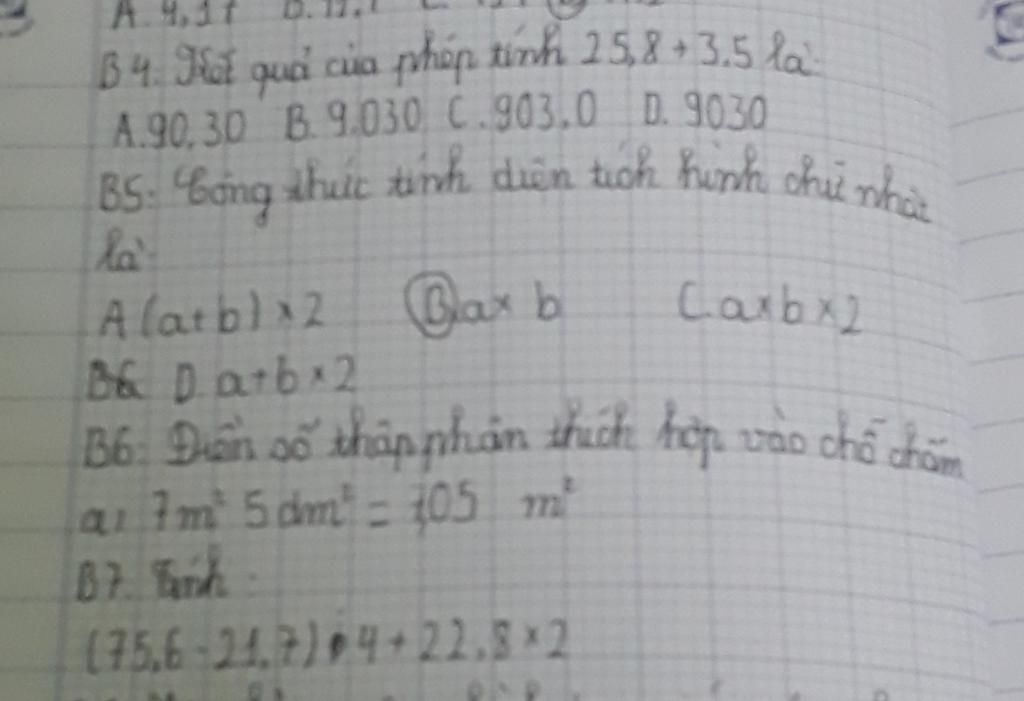 B4. Kết quả của phép tính 25,8 + 3.5 là:
A.90,30 B. 9,030 C. 903,0 D. 9030
B5: Công thức tính diện tích hình chữ nhật
là:
A (a+b) × 2 B a × b C. a×b × 2
B6 D. a+b × 2
B6: Điền số thập phân thích hợp vào chỗ chấm
a, 7m² 5 dm² = 7,05 m²
B7. Tính:
(75,6 - 21,7) : 4 + 22,8 × 2